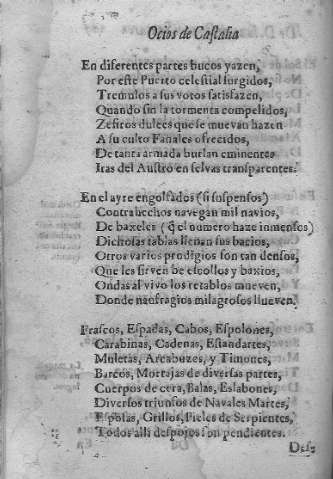 Ocios de Castalia
En diferentes partes bucos yazen,
Por este Puerto celestial surgidos,
Tremulos a sus votos satisfazen,
Quando sin la tormenta compelidos,
Zefiros dulces que se muevan hazen
A su culto Fanales ofrecidos,
De tanta armada burlan eminentes
Iras del Austro en selvas transparentes.
En el ayre engolfados (si suspensos)
Contrahechos navegan mil navios,
De baxeles (q̃ el numero haze inmensos)
Dichosas tablas llenan sus bacios,
Otros varios prodigios son tan densos,
Que les sirven de escollos y baxios,
Ondas al vivo los retablos mueven,
Donde naufragios milagrosos llueven.
Frascos, Espadas, Cabos, Espolones,
Carabinas, Cadenas, Estandartes,
Muletas, Arcabuzes, y Timones,
Barcos, Mortajas de diversas partes,
Cuerpos de cera, Balas, Eslabones,
Diversos triunfos de Navales Martes,
Espolas, Grillos, Pieles de Serpientes,
Todos alli despojos son pendientes.